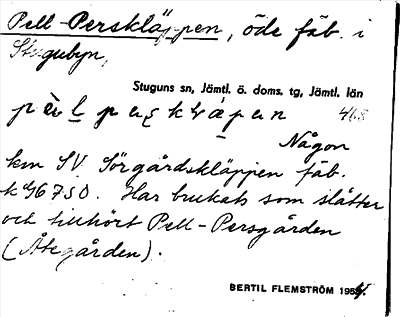 Pell-Perskläppen, öde fäb. i
Stugubyn,
Stuguns sn, Jämtl. ö. doms. tg, Jämtl. län
Någon
km SV Sörgårdskläppen fäb.
k 46750. Har brukats som slåtter
och tillhört Pell-Persgården
(Åtegården).
BERTIL FLEMSTRÖM 1954.